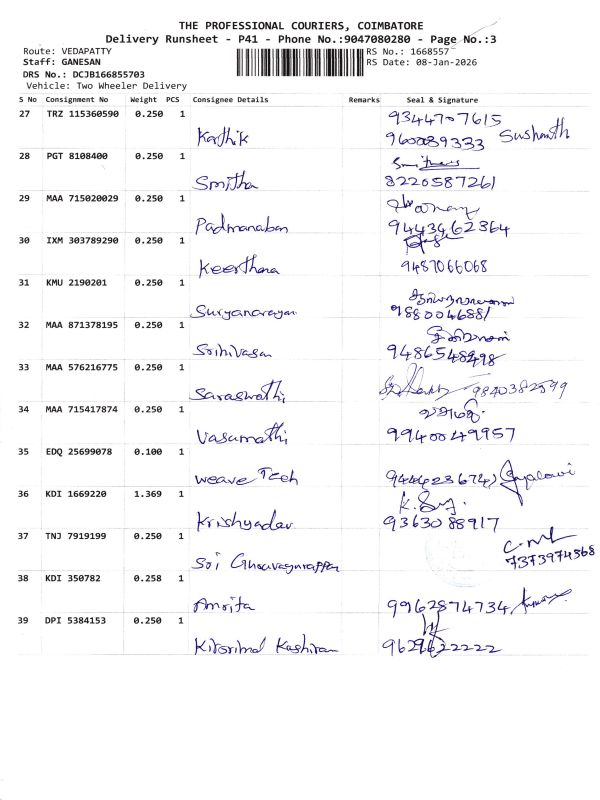 THE PROFESSIONAL COURIERS, COIMBATORE
Delivery Runsheet - P41 - Phone No.:9047080280 - Page No.:3
Route: VEDAPATTY
RS No.: 1668557
Staff: GANESAN
RS Date: 08-Jan-2026
DRS No.: DCJB166855703
Vehicle: Two Wheeler Delivery
S No Consignment No Weight PCS Consignee Details Remarks Seal & Signature
27 TRZ 115360590 0.250 1 9344707615
Karthik 960089333 Sushanth
28 PGT 8108400 0.250 1
Smitha 8220587261
29 MAA 715020029 0.250 1
Padmanaban 9443462364
30 IXM 303789290 0.250 1
Keerthana 9487066068
31 KMU 2190201 0.250 1
Suryanarayan 9880046881
32 MAA 871378195 0.250 1
Srinivasan 9486548498
33 MAA 576216775 0.250 1
Saraswathi 9840382599
34 MAA 715417874 0.250 1
Vasumathi 9940049957
35 EDQ 25699078 0.100 1
Weave Tech
36 KDI 1669220 1.369 1
Krishyadav 9363088917
37 TNJ 7919199 0.250 1
Sri 7373974368
38 KDI 350782 0.258 1
Amrita 9962874734
39 DPI 5384153 0.250 1
Kirorimal Kashiram 9629622222